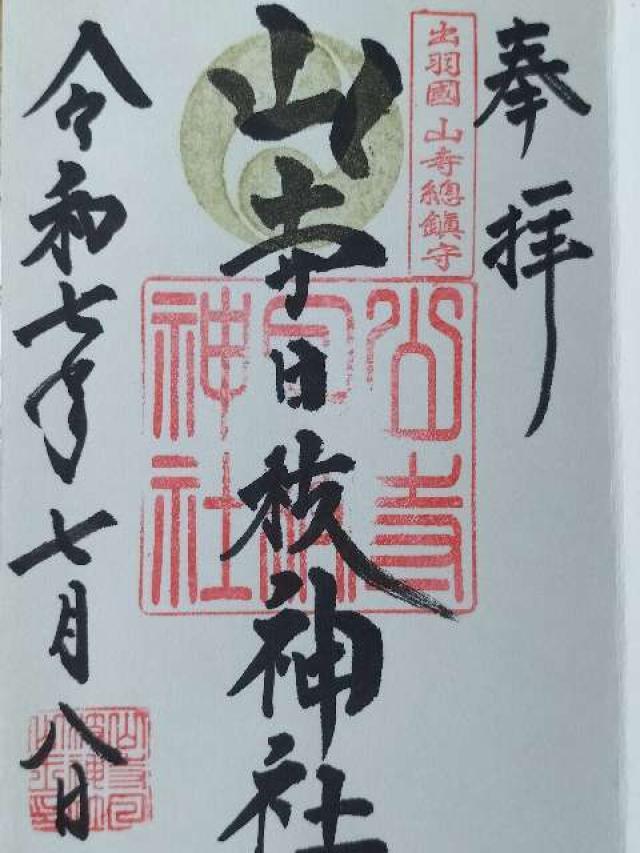 奉拝
出羽國 山寺總鎮守
山寺日枝神社
山寺
日枝
神社
令和七年七月八日